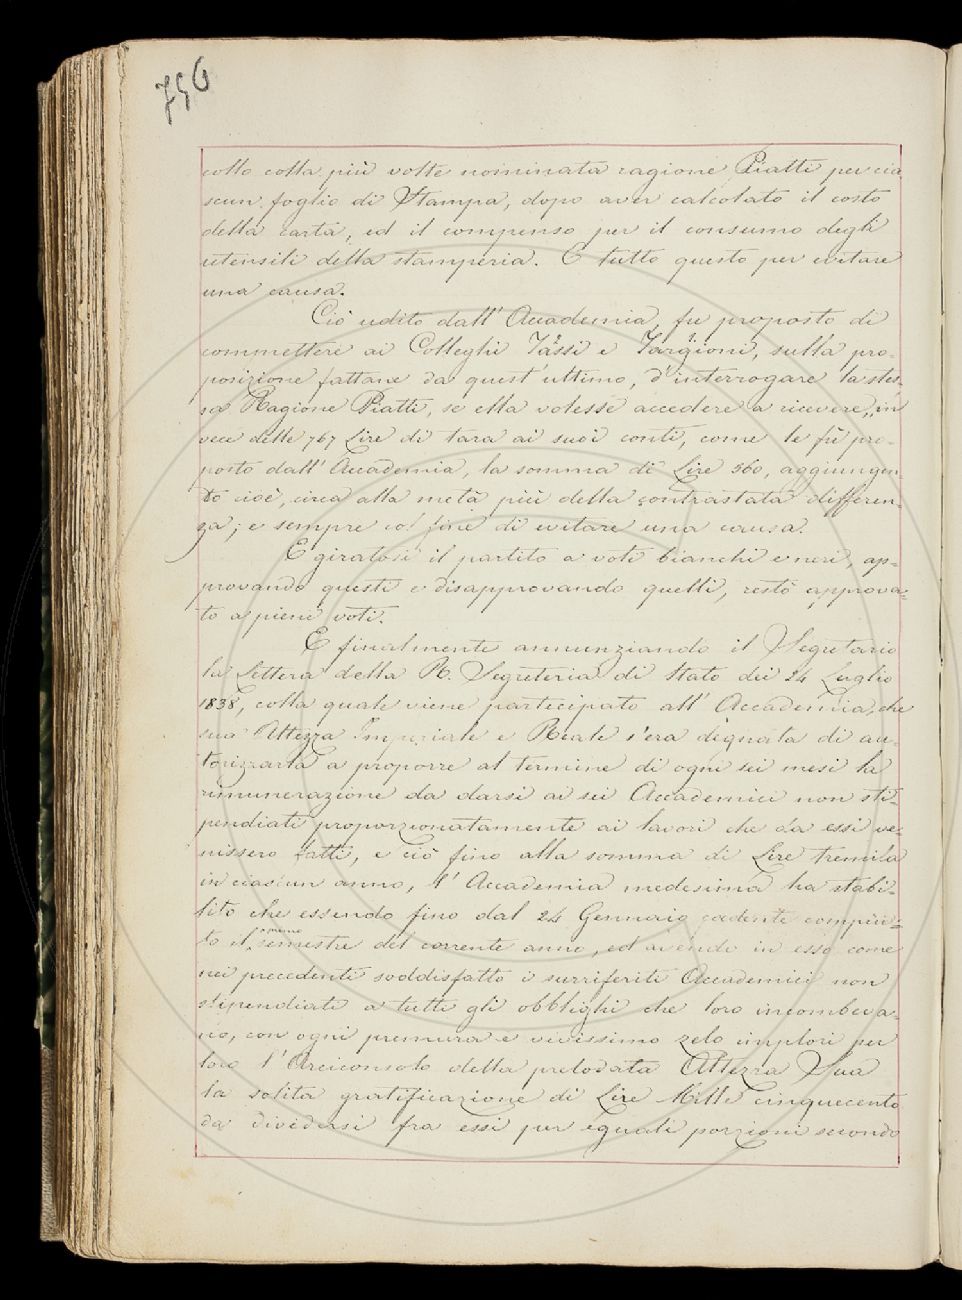 756
colto colla più volte nominata ragione Piatti per cia
scun foglio di Stampa, dopo aver calcolato il costo
della carta, ed il compenso per il consumo degli
utensili della stamperia. E tutto questo per evitare
una causa.
Ciò udito dall' Accademia, fu proposto di
commettere ai Colleghi Tassi e Targioni, sulla pro-
posizione fattane da quest'ultimo, d'interrogare la stes-
sa Ragione Piatti, se ella volesse accedere a ricevere, in
vece delle 767 Lire di tara ai suoi conti, come le fù pro-
posto dall' Accademia, la somma di Lire 560, aggiungen-
do cioè, circa alla metà più della contrastata differen-
za; e sempre col fine di evitare una causa.
E giratosi il partito a voti bianchi e neri, ap-
provando questi e disapprovando quelli, restò approva-
to a pieni voti.
E finalmente annunziando il Segretario
la Lettera della R. Segreteria di Stato dei 24 Luglio
1838, colla quale viene partecipato all' Accademia, che
sua Altezza Imperiale e Reale s'era degnata di au-
torizzarla a proporre al termine di ogni sei mesi la
rimunerazione da darsi ai sei Accademici non sti-
pendiati proporzionatamente ai lavori che da essi ve-
nissero fatti, e ciò fino alla somma di Lire tremila
in ciascun anno, l' Accademia medesima ha stabi-
lito che essendo fino dal 24 Gennaio cadente compiu-
to il primo semestre del corrente anno, ed avendo in esso come
nei precedenti soddisfatto i surriferiti Accademici non
stipendiati a tutti gli obblighi che loro incombeva-
no, con ogni premura e vivissimo zelo implori per
loro l' Arciconsolo della prelodata Altezza Sua
la solita gratificazione di Lire Mille cinquecento
da dividersi fra essi per eguali porzioni secondo